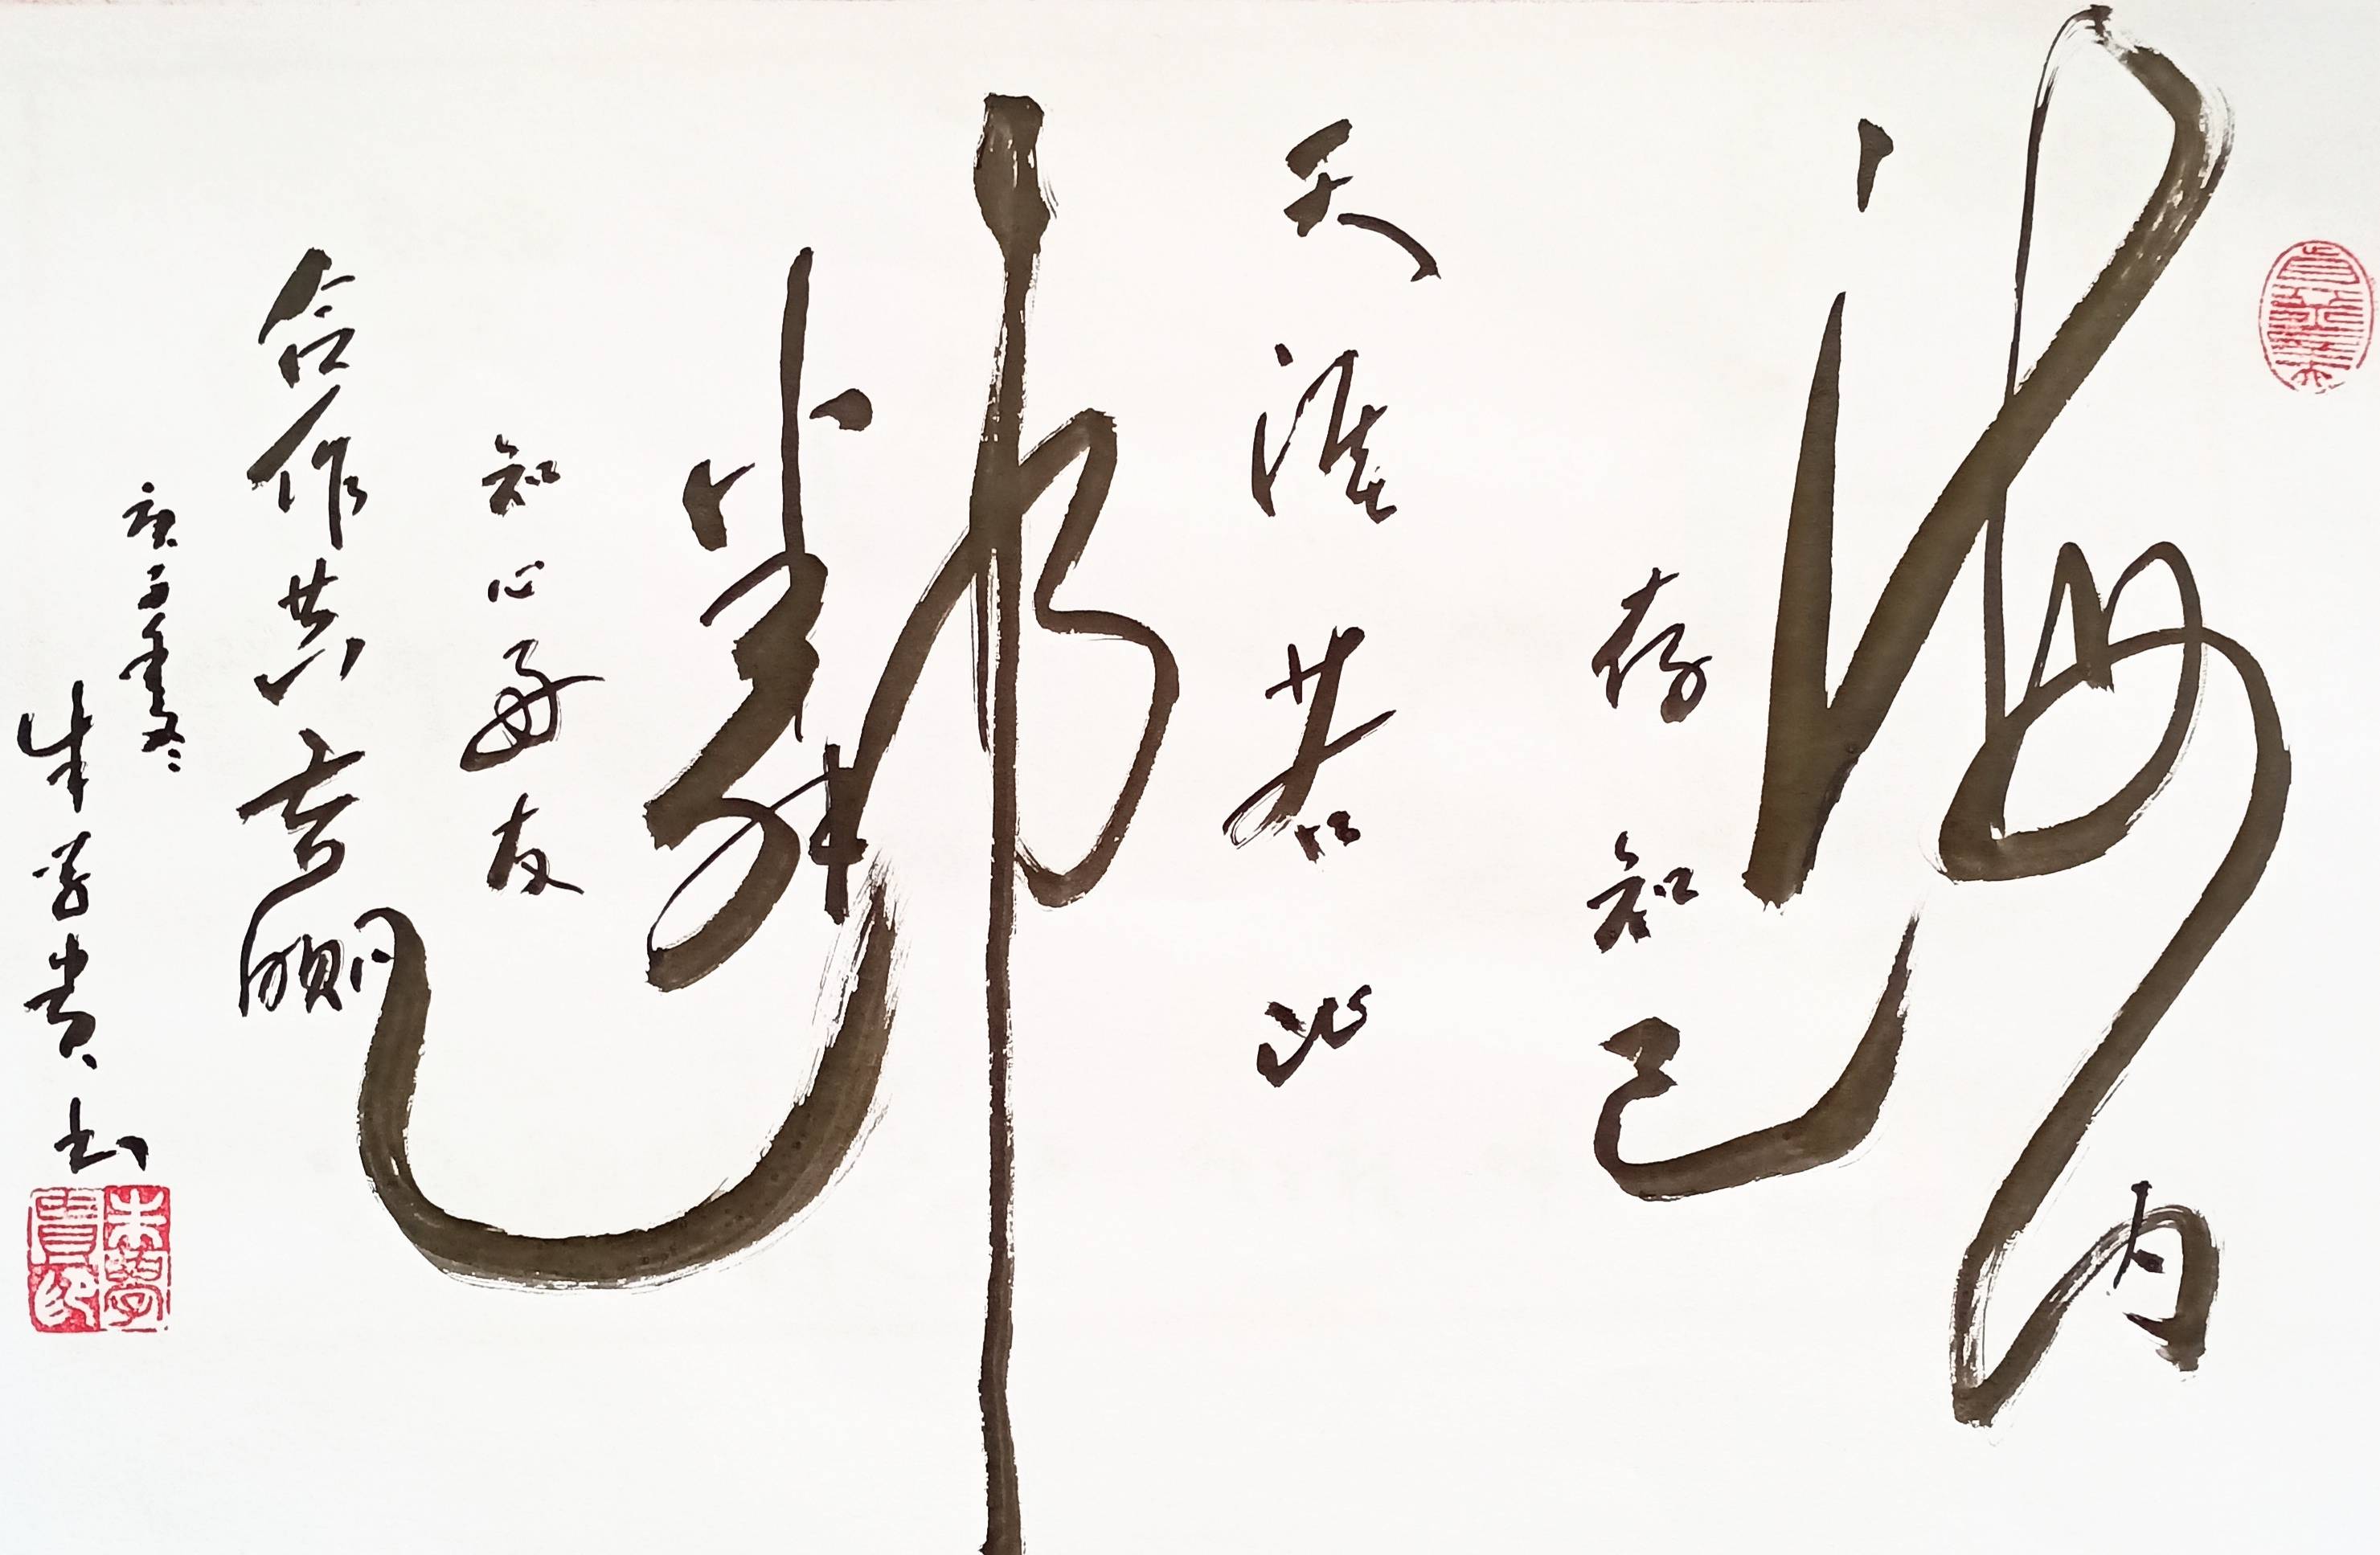 海内
存知己
天涯若比
鄰
知心好友
合作共赢
庚子年冬
朱学贵书
朱學
貴印